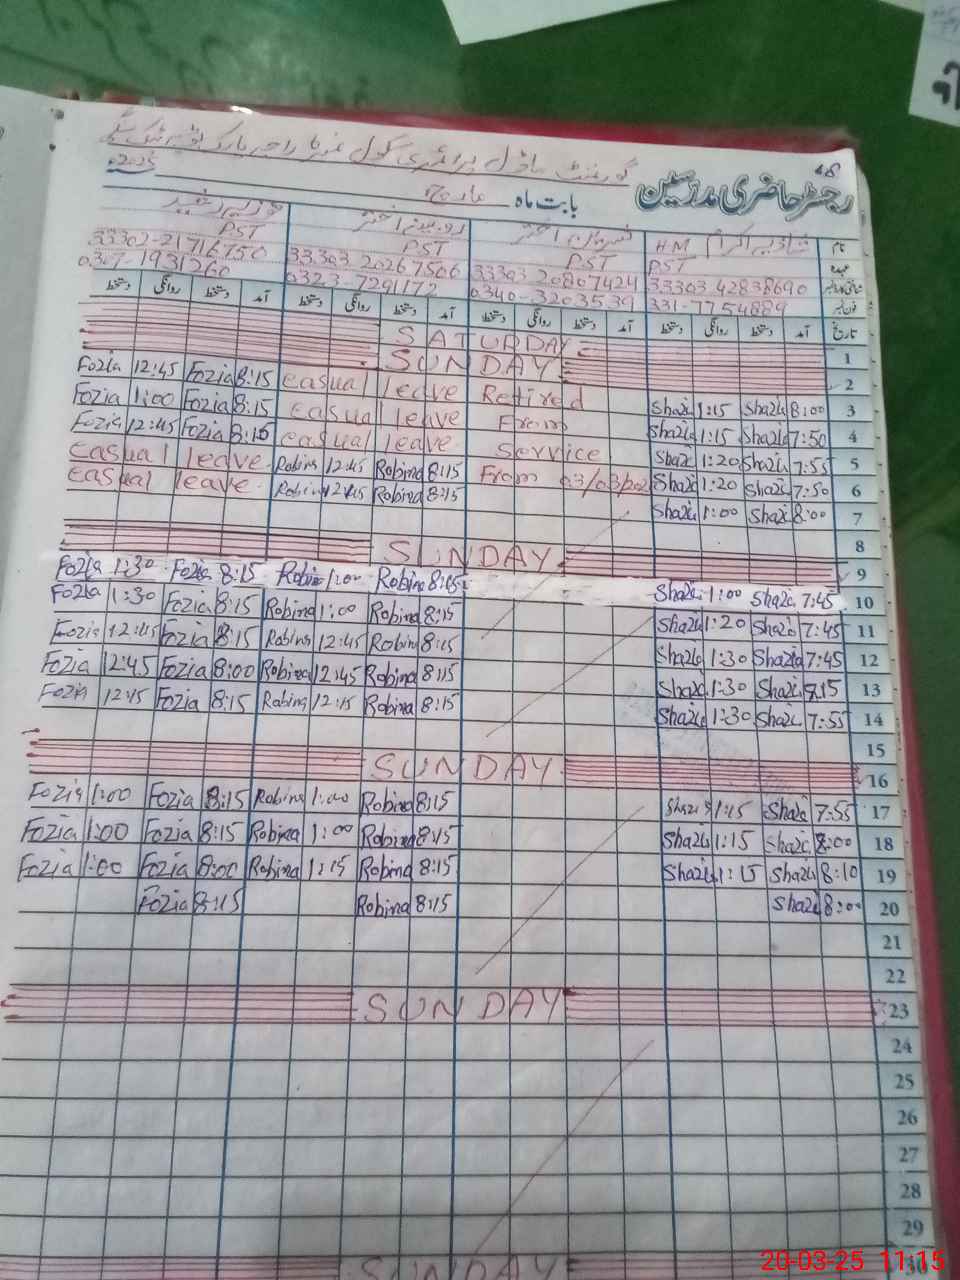 گورنمنٹ ماڈل پرائمری سکول
رجسٹر حاضری مدرسین بابت ماہ مارچ 2025
نام شازیہ اکرم H M روبینہ اختر فوزیہ رشید
عہدہ PST PST PST PST
33303 42838690 33303 20807424 33303 2026 7506 33302-21716750
331-7754889 0340-3203539 0323-7291172 0307-1931260
تاریخ آمد دستخط روانگی دستخط آمد دستخط روانگی دستخط آمد دستخط روانگی دستخط آمد دستخط روانگی دستخط
1 SATURDAY
2 SUNDAY
Fozia 12:45 Fozia 8:15 Casual leave Retired Shazi 1:15 Shazia 8:00 3
Fozia 1:00 Fozia 8:15 Casual leave From Shazia 1:15 Shazia 7:50 4
Fozia 12:45 Fozia 8:15 Casual leave Service Shazi 1:20 Shazia 7:55 5
Casual leave Robina 12:45 Robina 8:15 From 03/03/202 Shazi 1:20 Shazi 7:50 6
Casual leave Robina 12:45 Robina 8:15 Shazi 1:00 Shazi 8:00 7
8
SUNDAY 9
Fozia 1:30 Fozia 8:15 Robina 1:00 Robina 8:15 Shazi 1:00 Shazi 7:45 10
Fozia 1:30 Fozia 8:15 Robina 1:00 Robina 8:15 Shazi 1:20 Shazi 7:45 11
Fozia 12:45 Fozia 8:15 Robina 12:45 Robina 8:15 Shazi 1:30 Shazia 7:45 12
Fozia 12:45 Fozia 8:00 Robina 12:45 Robina 8:15 Shazi 1:30 Shazi 8:15 13
Fozia 12:15 Fozia 8:15 Robina 12:15 Robina 8:15 Shazi 1:30 Shazi 7:55 14
15
SUNDAY 16
Fozia 1:00 Fozia 8:15 Robina 1:00 Robina 8:15 Shazi 1:15 Shazi 7:55 17
Fozia 1:00 Fozia 8:15 Robina 1:00 Robina 8:15 Shazi 1:15 Shazi 8:00 18
Fozia 1:00 Fozia 8:00 Robina 1:15 Robina 8:15 Shazi 1:15 Shazi 8:10 19
Fozia 8:15 Robina 8:15 Shazi 8:00 20
21
22
SUNDAY 23
24
25
26
27
28
29
SUNDAY 30
20-03-25 11:15